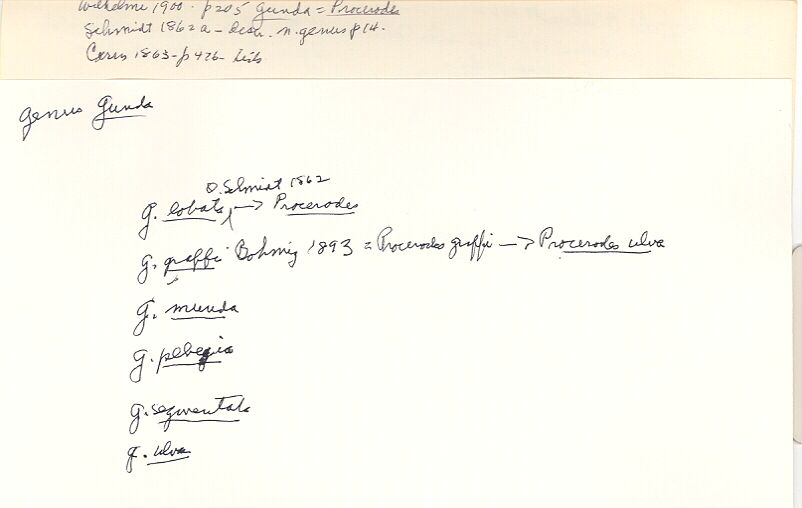 Wilhelmi 1900 - p205 Gunda = Procerodes
Schmidt 1862a - descr. n. genus p 14.
Carus 1863 - p 426 - lists
Genus Gunda
O. Schmidt 1862
G. lobata → Procerodes
G. graffi Bohmig 1893 = Procerodes graffi → Procerodes ulva
G. munda
G. segmentata
G. ulva